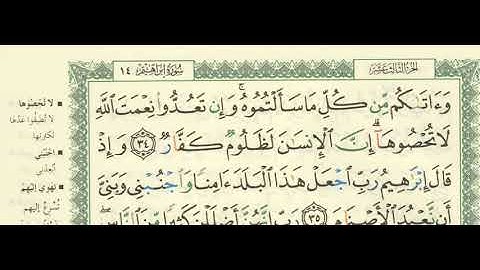 الجزء الثالث عشر
سورة إبراهيم ١٤
وَءَاتَىٰكُم مِّن كُلِّ مَا سَأَلْتُمُوهُ ۚ وَإِن تَعُدُّوا۟ نِعْمَتَ ٱللَّهِ
لَا تُحْصُوهَآ ۗ إِنَّ ٱلْإِنسَـٰنَ لَظَلُومٌ كَفَّارٌ ٣٤ وَإِذْ
قَالَ إِبْرَٰهِيمُ رَبِّ ٱجْعَلْ هَـٰذَا ٱلْبَلَدَ ءَامِنًا وَٱجْنُبْنِى وَبَنِىَّ
أَن نَّعْبُدَ ٱلْأَصْنَامَ ٣٥ رَبِّ إِنَّهُنَّ أَضْلَلْنَ كَثِيرًا مِّنَ ٱلنَّاسِ ۖ
لا تحصوها
لا تطيقوا عدّها
لكثرتها
اجنبني
أبعدني
تهوي إليهم
تسرع إليهم